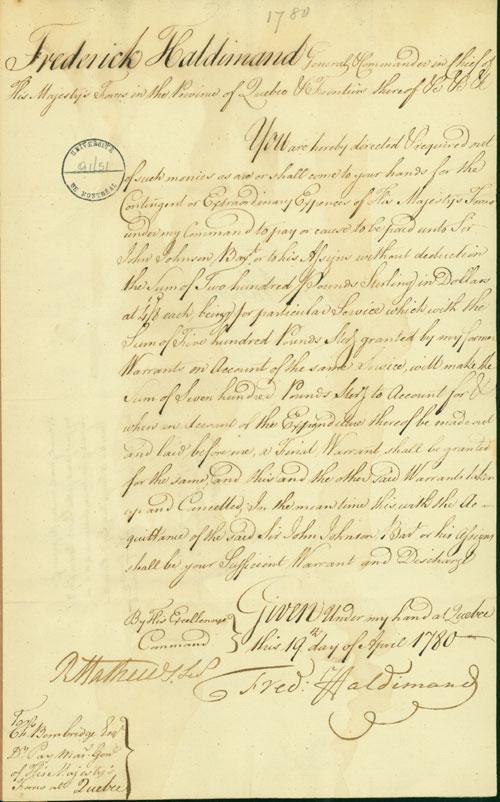 1780
Frederick Haldimand General & Commander in Chief of
His Majesty's Forces in the Province of Quebec & Frontiers thereof &c &c &c
UNIVERSITÉ
91/51
DE MONTRÉAL
You are hereby directed & required out
of such monies as are or shall come to your hands for the
Contingent or Extraordinary Expences of His Majesty's Forces
under my Command to pay or cause to be paid unto Sir
John Johnson Bart. or to his Assigns without deduction
the Sum of Two hundred Pounds Sterling in Dollars
at 4/8 each, being for particular Service which with the
Sum of Five hundred Pounds Sterg. granted by my former
Warrants on Account of the same Service, will make the
Sum of Seven hundred Pounds Sterg. to Account for &
when an Account of the Expenditure thereof be made out
and laid before me, a Final Warrant shall be granted
for the same, and this and the other said Warrants taken
up and Cancelled; In the mean time this with the Ac-
quittance of the said Sir John Johnson, Bart. or his Assigns
shall be your Sufficient Warrant and Discharge
Given Under my hand at Quebec
this 19th. day of April 1780
By His Excellency's
Command
R Mathews Sec
Fred: Haldimand
To
Bembridge Esqr.
Dy. Pay Mar. Genl.
of His Majesty's
Forces at Quebec